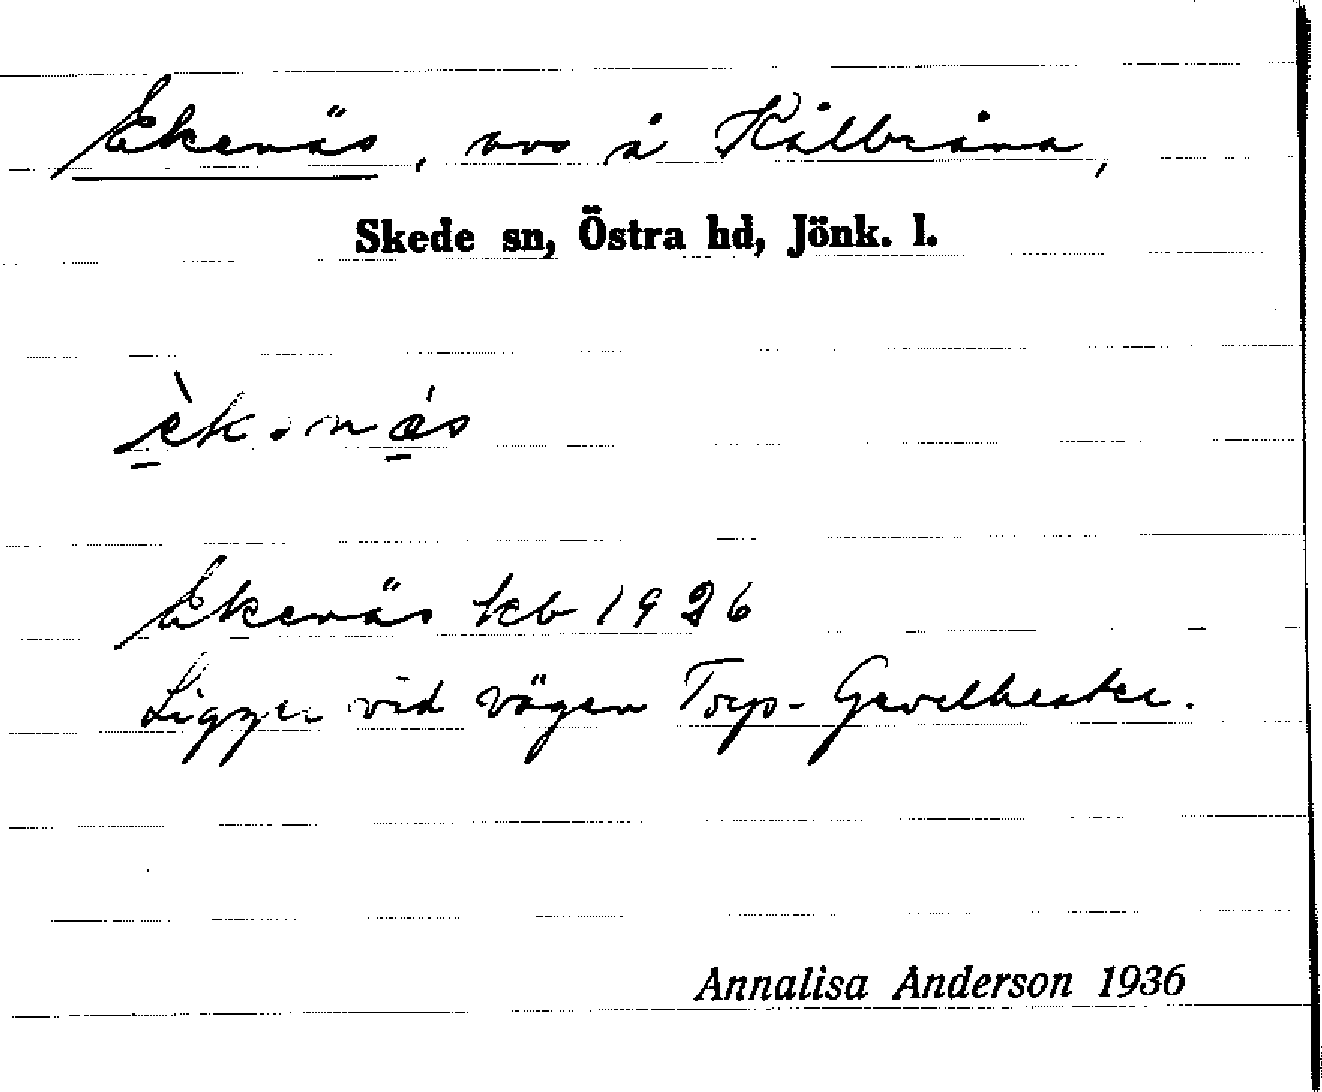 Ekenäs, avs å Kålbråna,
Skede sn, Östra hd, Jönk. l.
Ekenäs kb 1926
Ligger vid vägen Torp-
Annalisa Anderson 1936